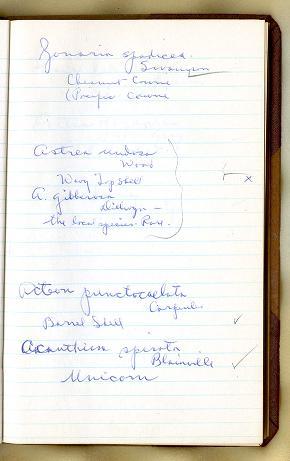 Zonaria spadicea
Swainson
Chestnut Cowrie
(Pacific Cowrie
Astrea undosa
Wood
Wavy Top Shell
A. gibberosa
Dillwyn —
the local species. Rare.
x
Acteon punctocaelata
Carpenter
Barrel Shell ✓
Acanthina spirata
Blainville ✓
Unicorn